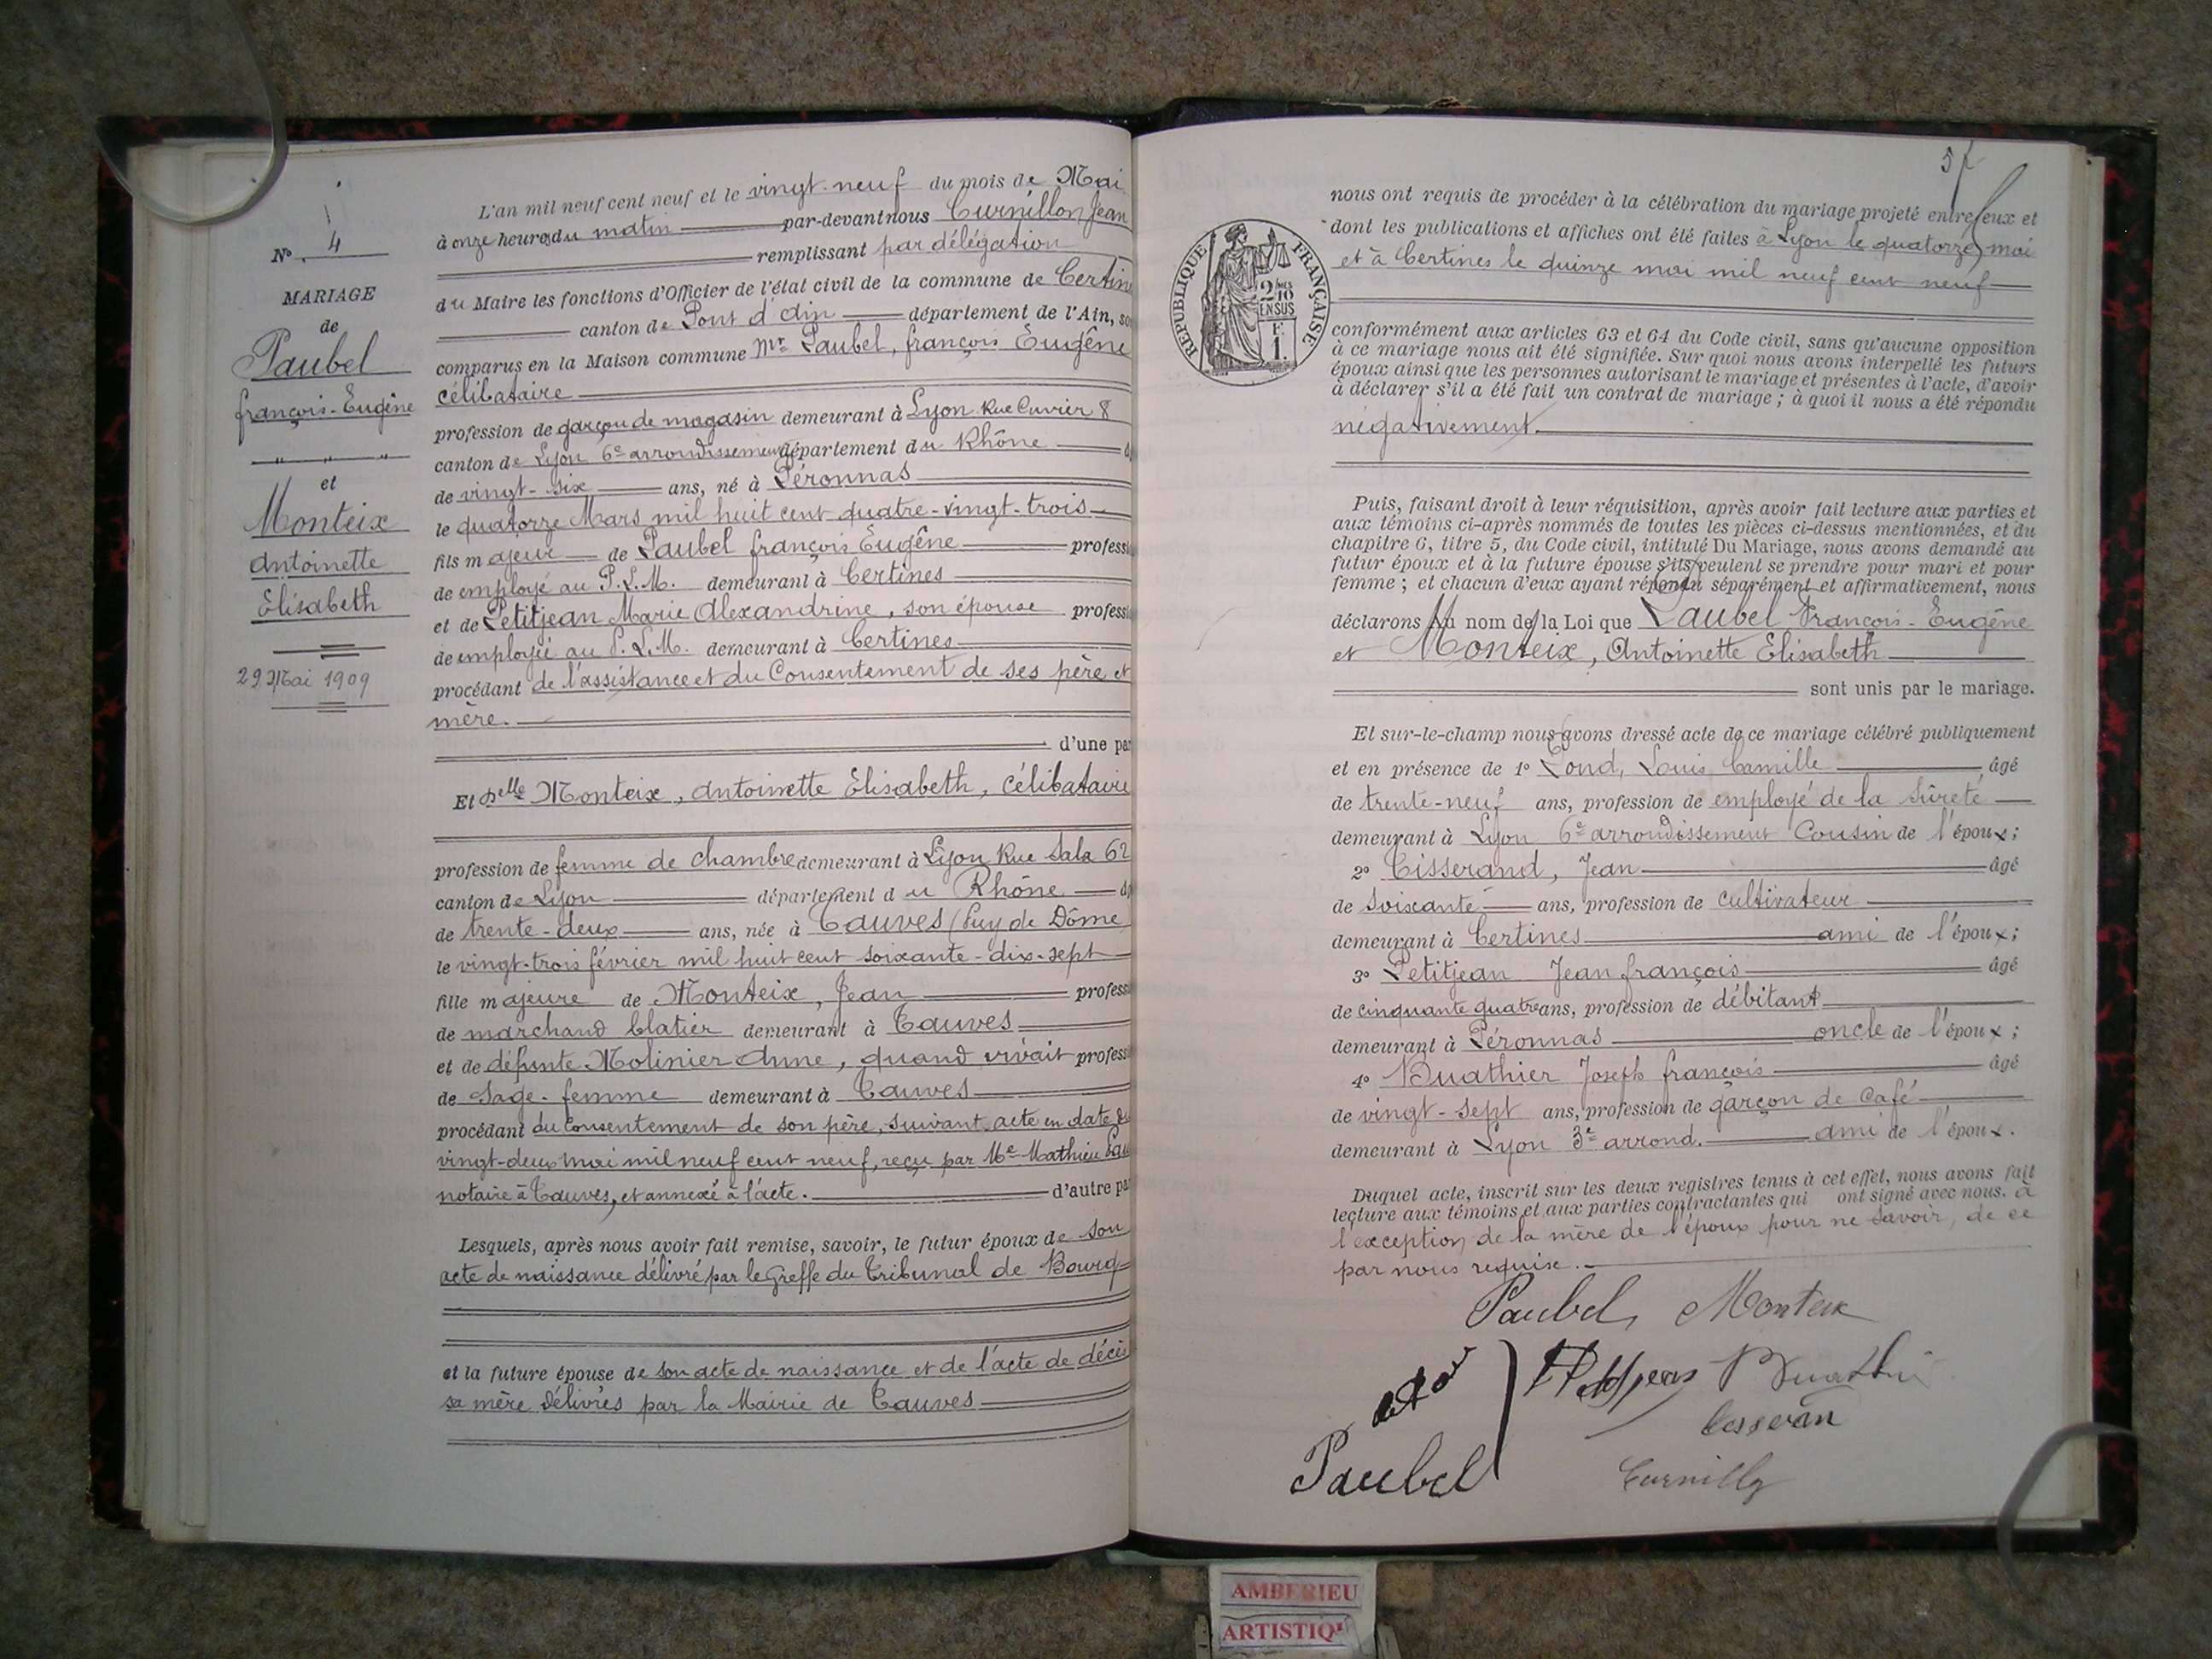 N° 4
MARIAGE
de
Paubel
françois-Eugène
et
Monteix
Antoinette
Elisabeth
29 Mai 1909
L'an mil neuf cent neuf et le vingt-neuf du mois de Mai
à onze heures du matin par-devant nous Curnillon Jean
remplissant par délégation
du Maire les fonctions d'Officier de l'état civil de la commune de Certin
canton de Pont d'Ain département de l'Ain, so
comparus en la Maison commune Mr Paubel, françois Eugène
célibataire
profession de garçon de magasin demeurant à Lyon Rue Cuvier 8
canton de Lyon 6e arrondissement département du Rhône
de vingt-six ans, né à Péronnas
le quatorze Mars mil huit cent quatre-vingt-trois
fils majeur de Paubel françois Eugène professi
de employé au P.L.M. demeurant à Certines
et de Petitjean Marie Alexandrine, son épouse professi
de employée au P.L.M. demeurant à Certines
procédant de l'assistance et du Consentement de ses père et
mère.
d'une par
Et Delle Monteix, Antoinette Elisabeth, Célibataire
profession de femme de chambre demeurant à Lyon Rue Sala 62
canton de Lyon département du Rhône
de trente-deux ans, née à Tauves (Puy de Dôme
le vingt-trois février mil huit cent soixante-dix-sept
fille majeure de Monteix, Jean professi
de marchand blatier demeurant à Tauves
et de défunte Molinier Anne, quand vivait professi
de Sage-femme demeurant à Tauves
procédant du Consentement de son père, suivant acte en date du
vingt-deux mai mil neuf cent neuf, reçu par Me Mathieu
notaire à Tauves, et annexé à l'acte. d'autre pa
Lesquels, après nous avoir fait remise, savoir, le futur époux de son
acte de naissance délivré par le Greffe du Tribunal de Bourg
et la future épouse de son acte de naissance et de l'acte de décès
sa mère délivrés par la Mairie de Tauves
RÉPUBLIQUE FRANÇAISE
2/10
EN SUS
F.
1.
nous ont requis de procéder à la célébration du mariage projeté entre eux et
dont les publications et affiches ont été faites à Lyon le quatorze mai
et à Certines le quinze mai mil neuf cent neuf
conformément aux articles 63 et 64 du Code civil, sans qu'aucune opposition
à ce mariage nous ait été signifiée. Sur quoi nous avons interpellé les futurs
époux ainsi que les personnes autorisant le mariage et présentes à l'acte, d'avoir
à déclarer s'il a été fait un contrat de mariage ; à quoi il nous a été répondu
négativement.
Puis, faisant droit à leur réquisition, après avoir fait lecture aux parties et
aux témoins ci-après nommés de toutes les pièces ci-dessus mentionnées, et du
chapitre 6, titre 5, du Code civil, intitulé Du Mariage, nous avons demandé au
futur époux et à la future épouse s'ils veulent se prendre pour mari et pour
femme ; et chacun d'eux ayant répondu séparément et affirmativement, nous
déclarons au nom de la Loi que Paubel François-Eugène
et Monteix, Antoinette Elisabeth
sont unis par le mariage.
Et sur-le-champ nous avons dressé acte de ce mariage célébré publiquement
et en présence de 1° Cond, Louis, Camille âgé
de trente-neuf ans, profession de employé de la Sûreté
demeurant à Lyon 6e arrondissement Cousin de l'époux ;
2° Tisserand, Jean âgé
de soixante ans, profession de cultivateur
demeurant à Certines ami de l'époux ;
3° Petitjean Jean françois âgé
de cinquante quatre ans, profession de débitant
demeurant à Péronnas oncle de l'époux ;
4° Buathier Joseph françois âgé
de vingt-sept ans, profession de garçon de Café
demeurant à Lyon 3e arrond. ami de l'époux.
Duquel acte, inscrit sur les deux registres tenus à cet effet, nous avons fait
lecture aux témoins et aux parties contractantes qui ont signé avec nous. à
l'exception de la mère de l'époux pour ne savoir, de ce
par nous requise.
Paubel Monteix
Paubel
AMBERIEU
ARTISTIQ